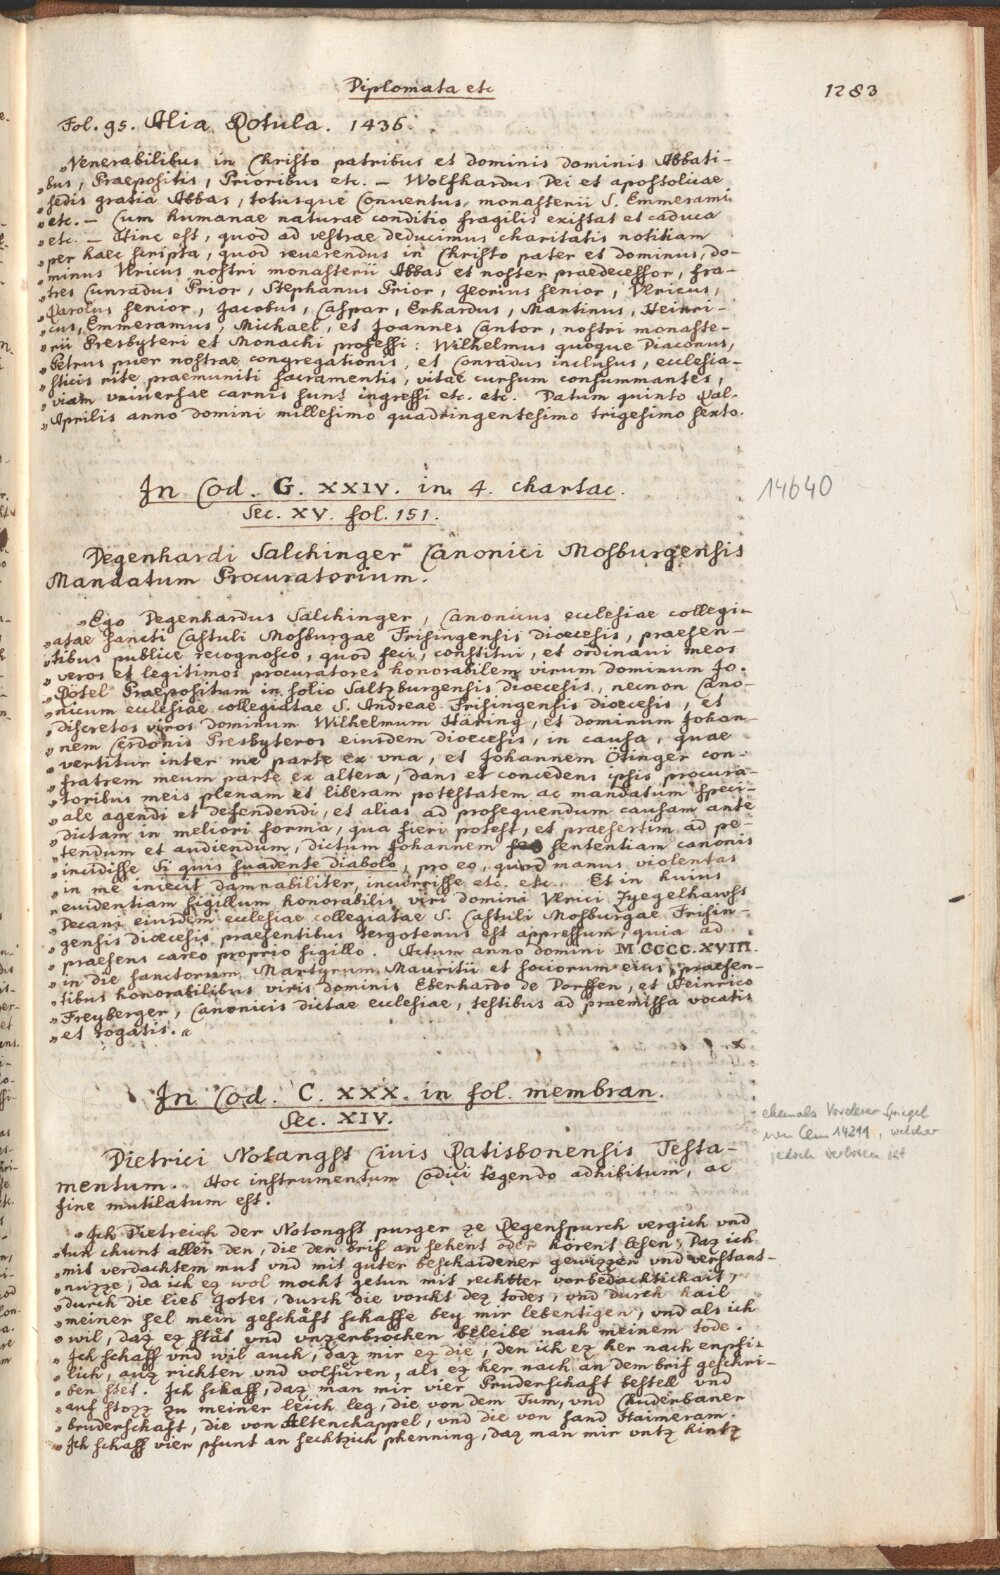 Diplomata etc
1283
Fol. 95. Alia Rotula. 1436.
„Venerabilibus in Christo patribus et dominis dominis Abbati-
„bus, Praepositis, Prioribus etc. — Wolfhardus Dei et apostolicae
„sedis gratia Abbas, totusque Conventus monasterii S. Emmerami
„etc. — Cum humanae naturae conditio fragilis existat et caduca
„etc. — Hinc est, quod ad vestrae deducimus charitatis notitiam
„per haec scripta, quod reuerendus in Christo pater et dominus, do-
„minus Vlricus nostri monasterii Abbas et noster praedecessor, fra-
„tres Cunradus Prior, Stephanus Prior, Georius senior, Vlricus,
„Karolus senior, Jacobus, Caspar, Erhardus, Martinus, Heinri-
„cus, Emmeramus, Michael, et Joannes Cantor, nostri monaste-
„rii Presbyteri et Monachi professi: Wilhelmus quoque Diaconus,
„Petrus puer nostrae congregationis, et Conradus inclusus, ecclesia-
„sticis rite praemuniti sacramentis, vitae cursum consummantes,
„viam vniuersae carnis sunt ingressi etc. etc. Datum quinto Kal.
„Aprilis anno domini millesimo quadringentesimo trigesimo sexto.
In Cod. G. XXIV. in 4. chartac.
14640
Sec. XV. fol. 151.
Degenhardi Salchinger Canonici Mosburgensis
Mandatum Procuratorium.
„Ego Degenhardus Salchinger, Canonicus ecclesiae collegi-
„atae sancti Castuli Mosburgae Frisingensis dioecesis, praesen-
„tibus publice recognosco, quod feci, constitui, et ordinaui meos
„veros et legitimos procuratores honorabilem virum dominum Jo.
„Rötel Praepositum in solio Saltzburgensis dioecesis, necnon Cano-
„nicum ecclesiae collegiatae S. Andreae Frisingensis dioecesis, et
„discretos viros dominum Wilhelmum Häring, et dominum Johan-
„nem Cerdonis Presbyteros eiusdem dioecesis, in causa, quae
„vertitur inter me parte ex vna, et Johannem Ötinger con-
„fratrem meum parte ex altera, dans et concedens ipsis procura-
„toribus meis plenam et liberam potestatem ac mandatum speci-
„ale agendi et defendendi, et alias ad prosequendum causam ante
„dictam in meliori forma, qua fieri potest, et praesertim ad pe-
„tendum et audiendum, dictum Johannem sententiam canonis
„incidisse Si quis suadente diabolo, pro eo, quod manus violentas
„in me iniecit damnabiliter, incurrisse etc. etc. Et in huius
„euidentiam sigillum honorabilis viri domini Vlrici Zyegelhawss
„Decani eiusdem ecclesiae collegiatae S. Castuli Mosburgae Frisin-
„gensis dioecesis praesentibus tergotenus est appressum, quia ad
„praesens careo proprio sigillo. Actum anno domini MCCCC.XVIII.
„in die sanctorum Martyrum Mauritii et sociorum eius, praesen-
„tibus honorabilibus viris dominis Eberhardo de Dorffen, et Heinrico
„Freyberger, Canonicis dictae ecclesiae, testibus ad praemissa vocatis
„et rogatis."
In Cod. C. XXX. in fol. membran.
Sec. XIV.
ehemals Vorderer Spiegel
von Clm 14211, welcher
jedoch verloren ist
Dietrici Notangst Ciuis Ratisbonensis Testa-
mentum. Hoc instrumentum Codici tegendo adhibitum, ac
fine mutilatum est.
„Ich Dietreich der Notongst purger ze Regenspurch vergich vnd
„tun chunt allen den, die den brif an sehent oder hörent lesen, Daz ich
„mit verdachtem mut vnd mit guter beschaidener gewizzen vnd verstant-
„nuzze, da ich ez wol mocht getun mit rechtter vorbedachtickait,
„durch die lieb Gotes, durch die vorcht dez todes, vnd durch hail
„meiner sel mein geschäft schaffe bey mir lebentigen, vnd als ich
„wil, daz ez stät vnd vnzerbrochen beleibe nach meinem tode.
„Ich schaff vnd wil auch, daz mir ez die, den ich ez her nach enpfi-
„lich, auz richten vnd volfüren, als ez her nach an dem brif geschri-
„ben stet. Ich schaff, daz man mir vier Pruderschaft bestell vnd
„auf stozz zu meiner leich leg, die von dem Tum, vnd Chuderbaner
„bruderschaft, die von Altenchappel, vnd die von sand Haimeram.
„Ich schaff vier pfunt an sechtzich phenning, daz man mir vntz hintz